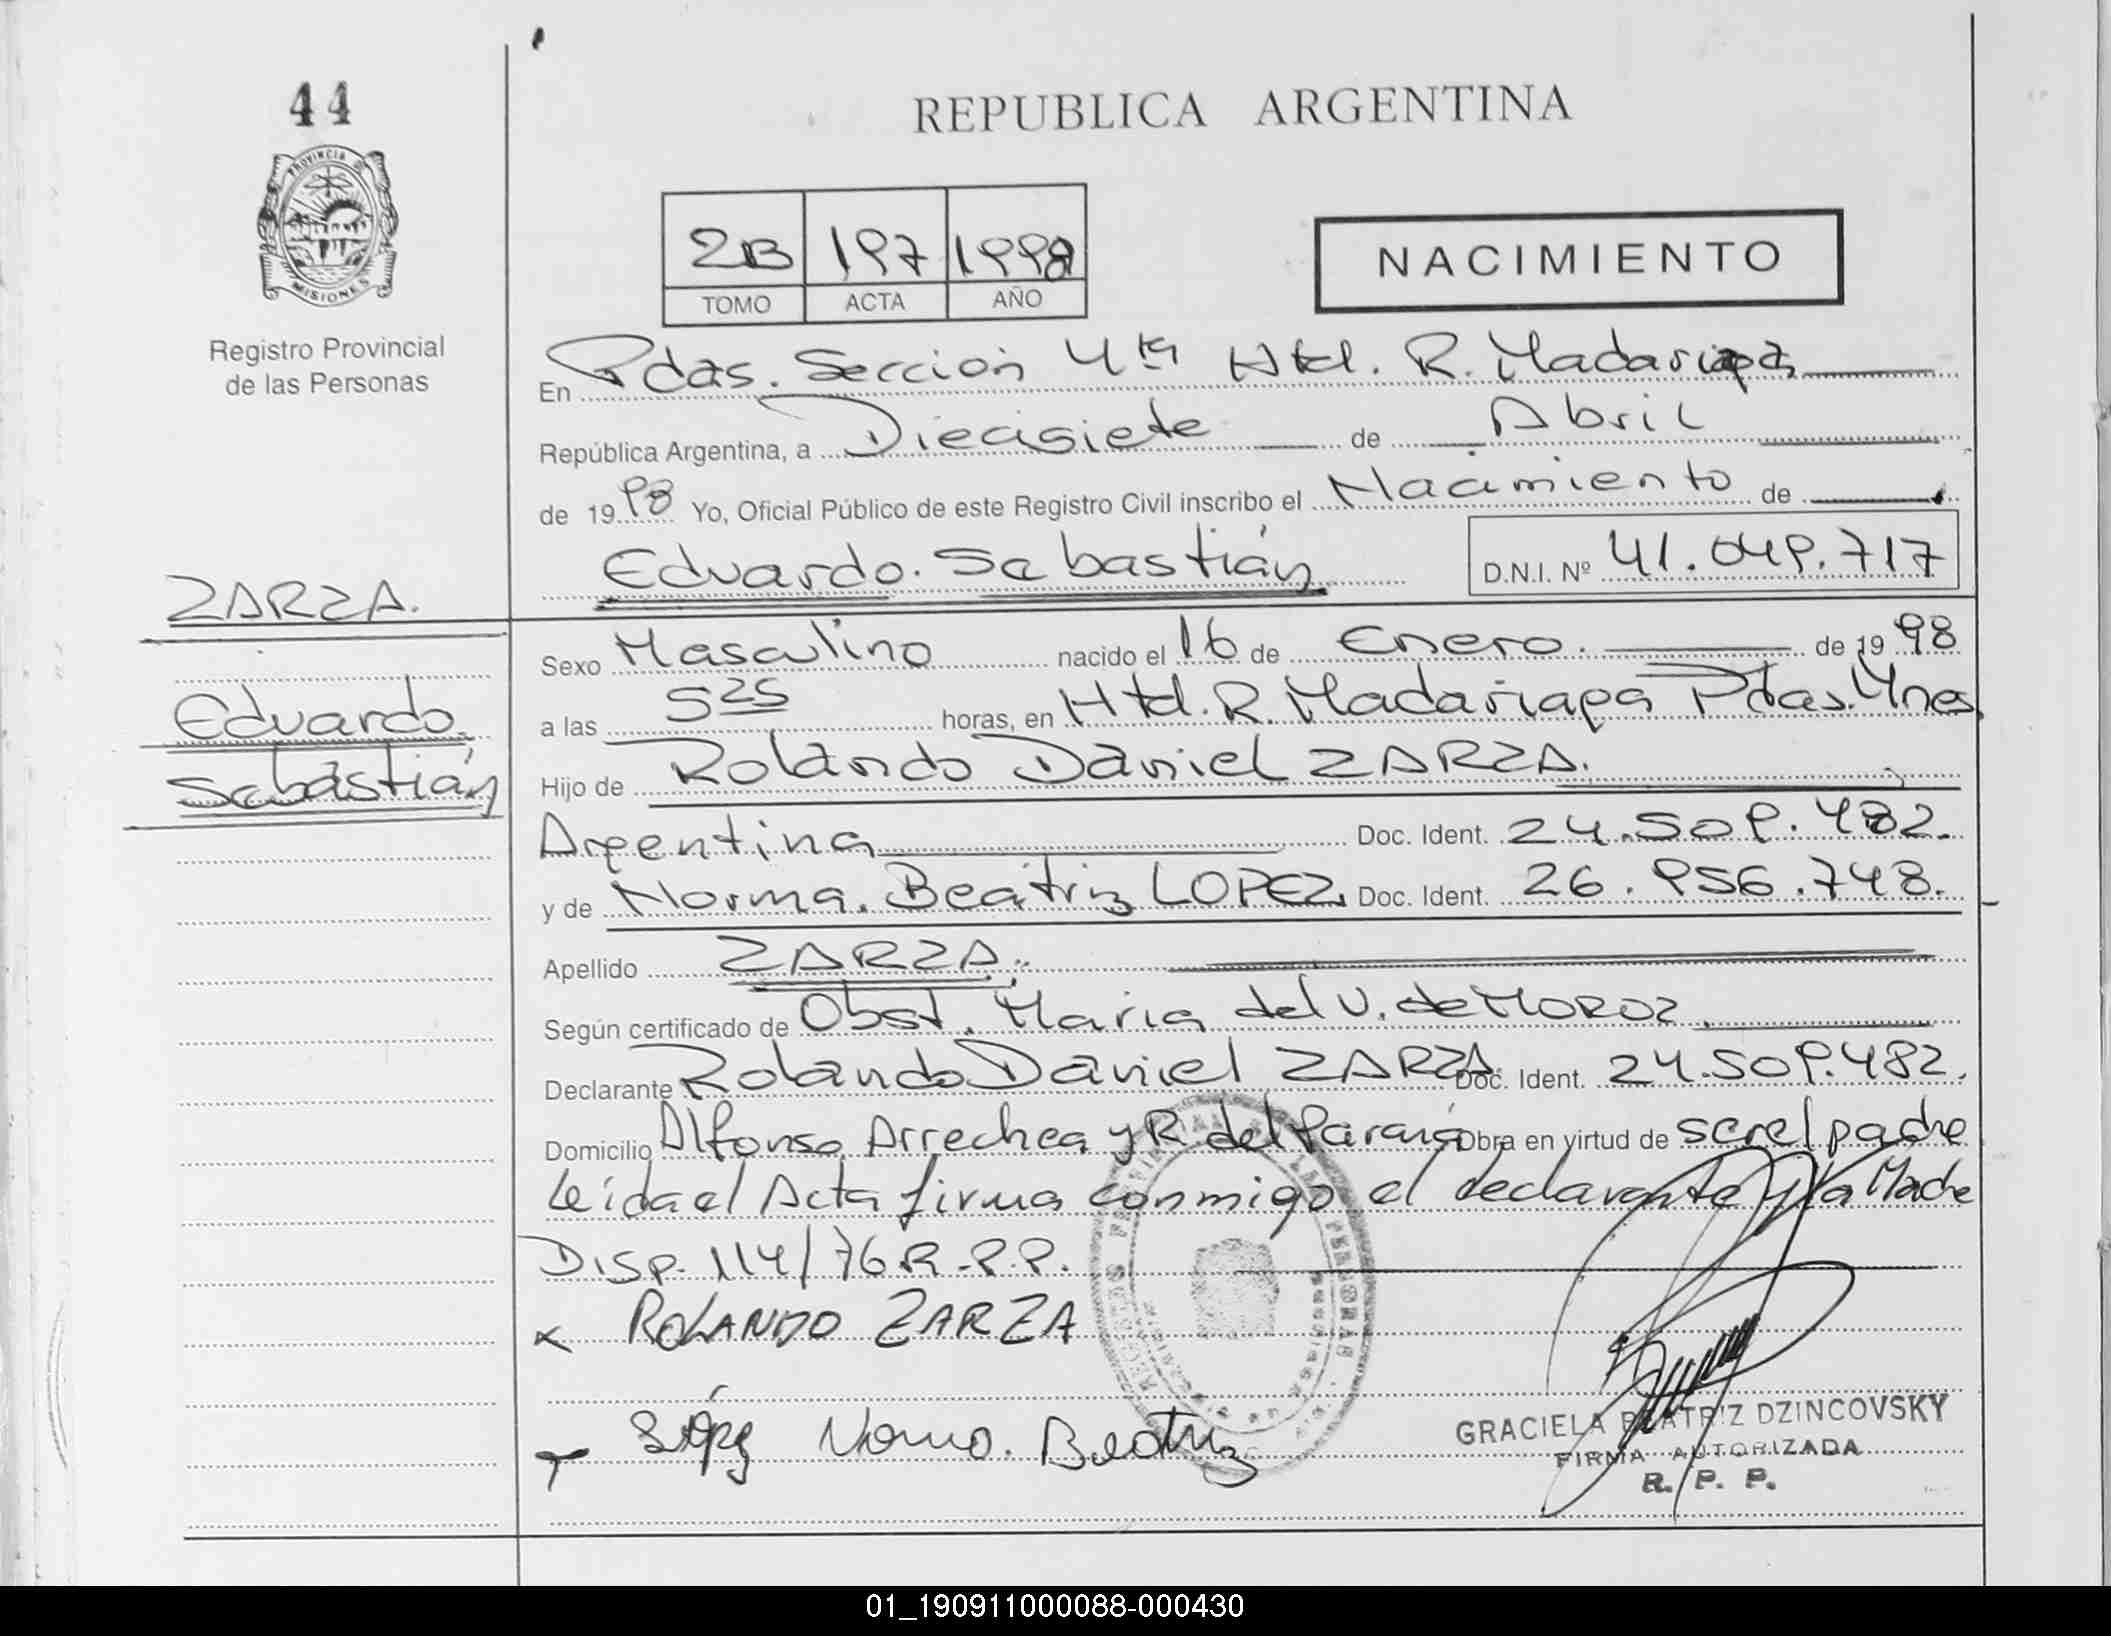 44
REPUBLICA ARGENTINA
PROVINCIA DE
MISIONES
Registro Provincial
de las Personas
2B 197 1998
TOMO ACTA AÑO
NACIMIENTO
En Pdas. Sección 4ta Htal. R. Madariaga
República Argentina, a Diecisiete de Abril
de 1998 Yo, Oficial Público de este Registro Civil inscribo el Nacimiento de
Eduardo. Sebastián D.N.I. Nº 41.049.717
ZARZA.
Eduardo.
Sebastián
Sexo Masculino nacido el 16 de Enero. de 1998
a las 5 25 horas, en Htal. R. Madariaga Pdas. Mnes
Hijo de Rolando Daniel ZARZA.
Argentina Doc. Ident. 24.509.482.
y de Norma. Beátriz LOPEZ. Doc. Ident. 26.956.748.
Apellido ZARZA.
Según certificado de Obst. Maria del V. de MOROZ.
Declarante Rolando Daniel ZARZA Doc. Ident. 24.509.482.
Domicilio Alfonso Arrechea y R. del Paraná Obra en virtud de ser el padre
Leída el Acta firma conmigo el declarante y la Madre
Disp. 114/76 R.P.P.
x ROLANDO ZARZA
Norma. Beatriz
GRACIELA BEATRIZ DZINCOVSKY
FIRMA AUTORIZADA
R. P. P.
01_190911000088-000430